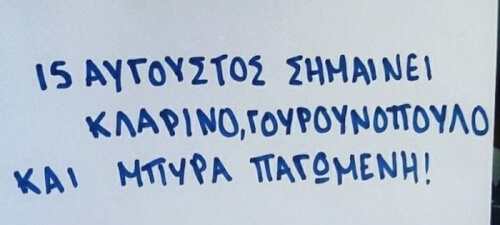 15 ΑΥΓΟΥΣΤΟΣ ΣΗΜΑΙΝΕΙ
ΚΛΑΡΙΝΟ, ΓΟΥΡΟΥΝΟΠΟΥΛΟ
ΚΑΙ ΜΠΥΡΑ ΠΑΓΩΜΕΝΗ!